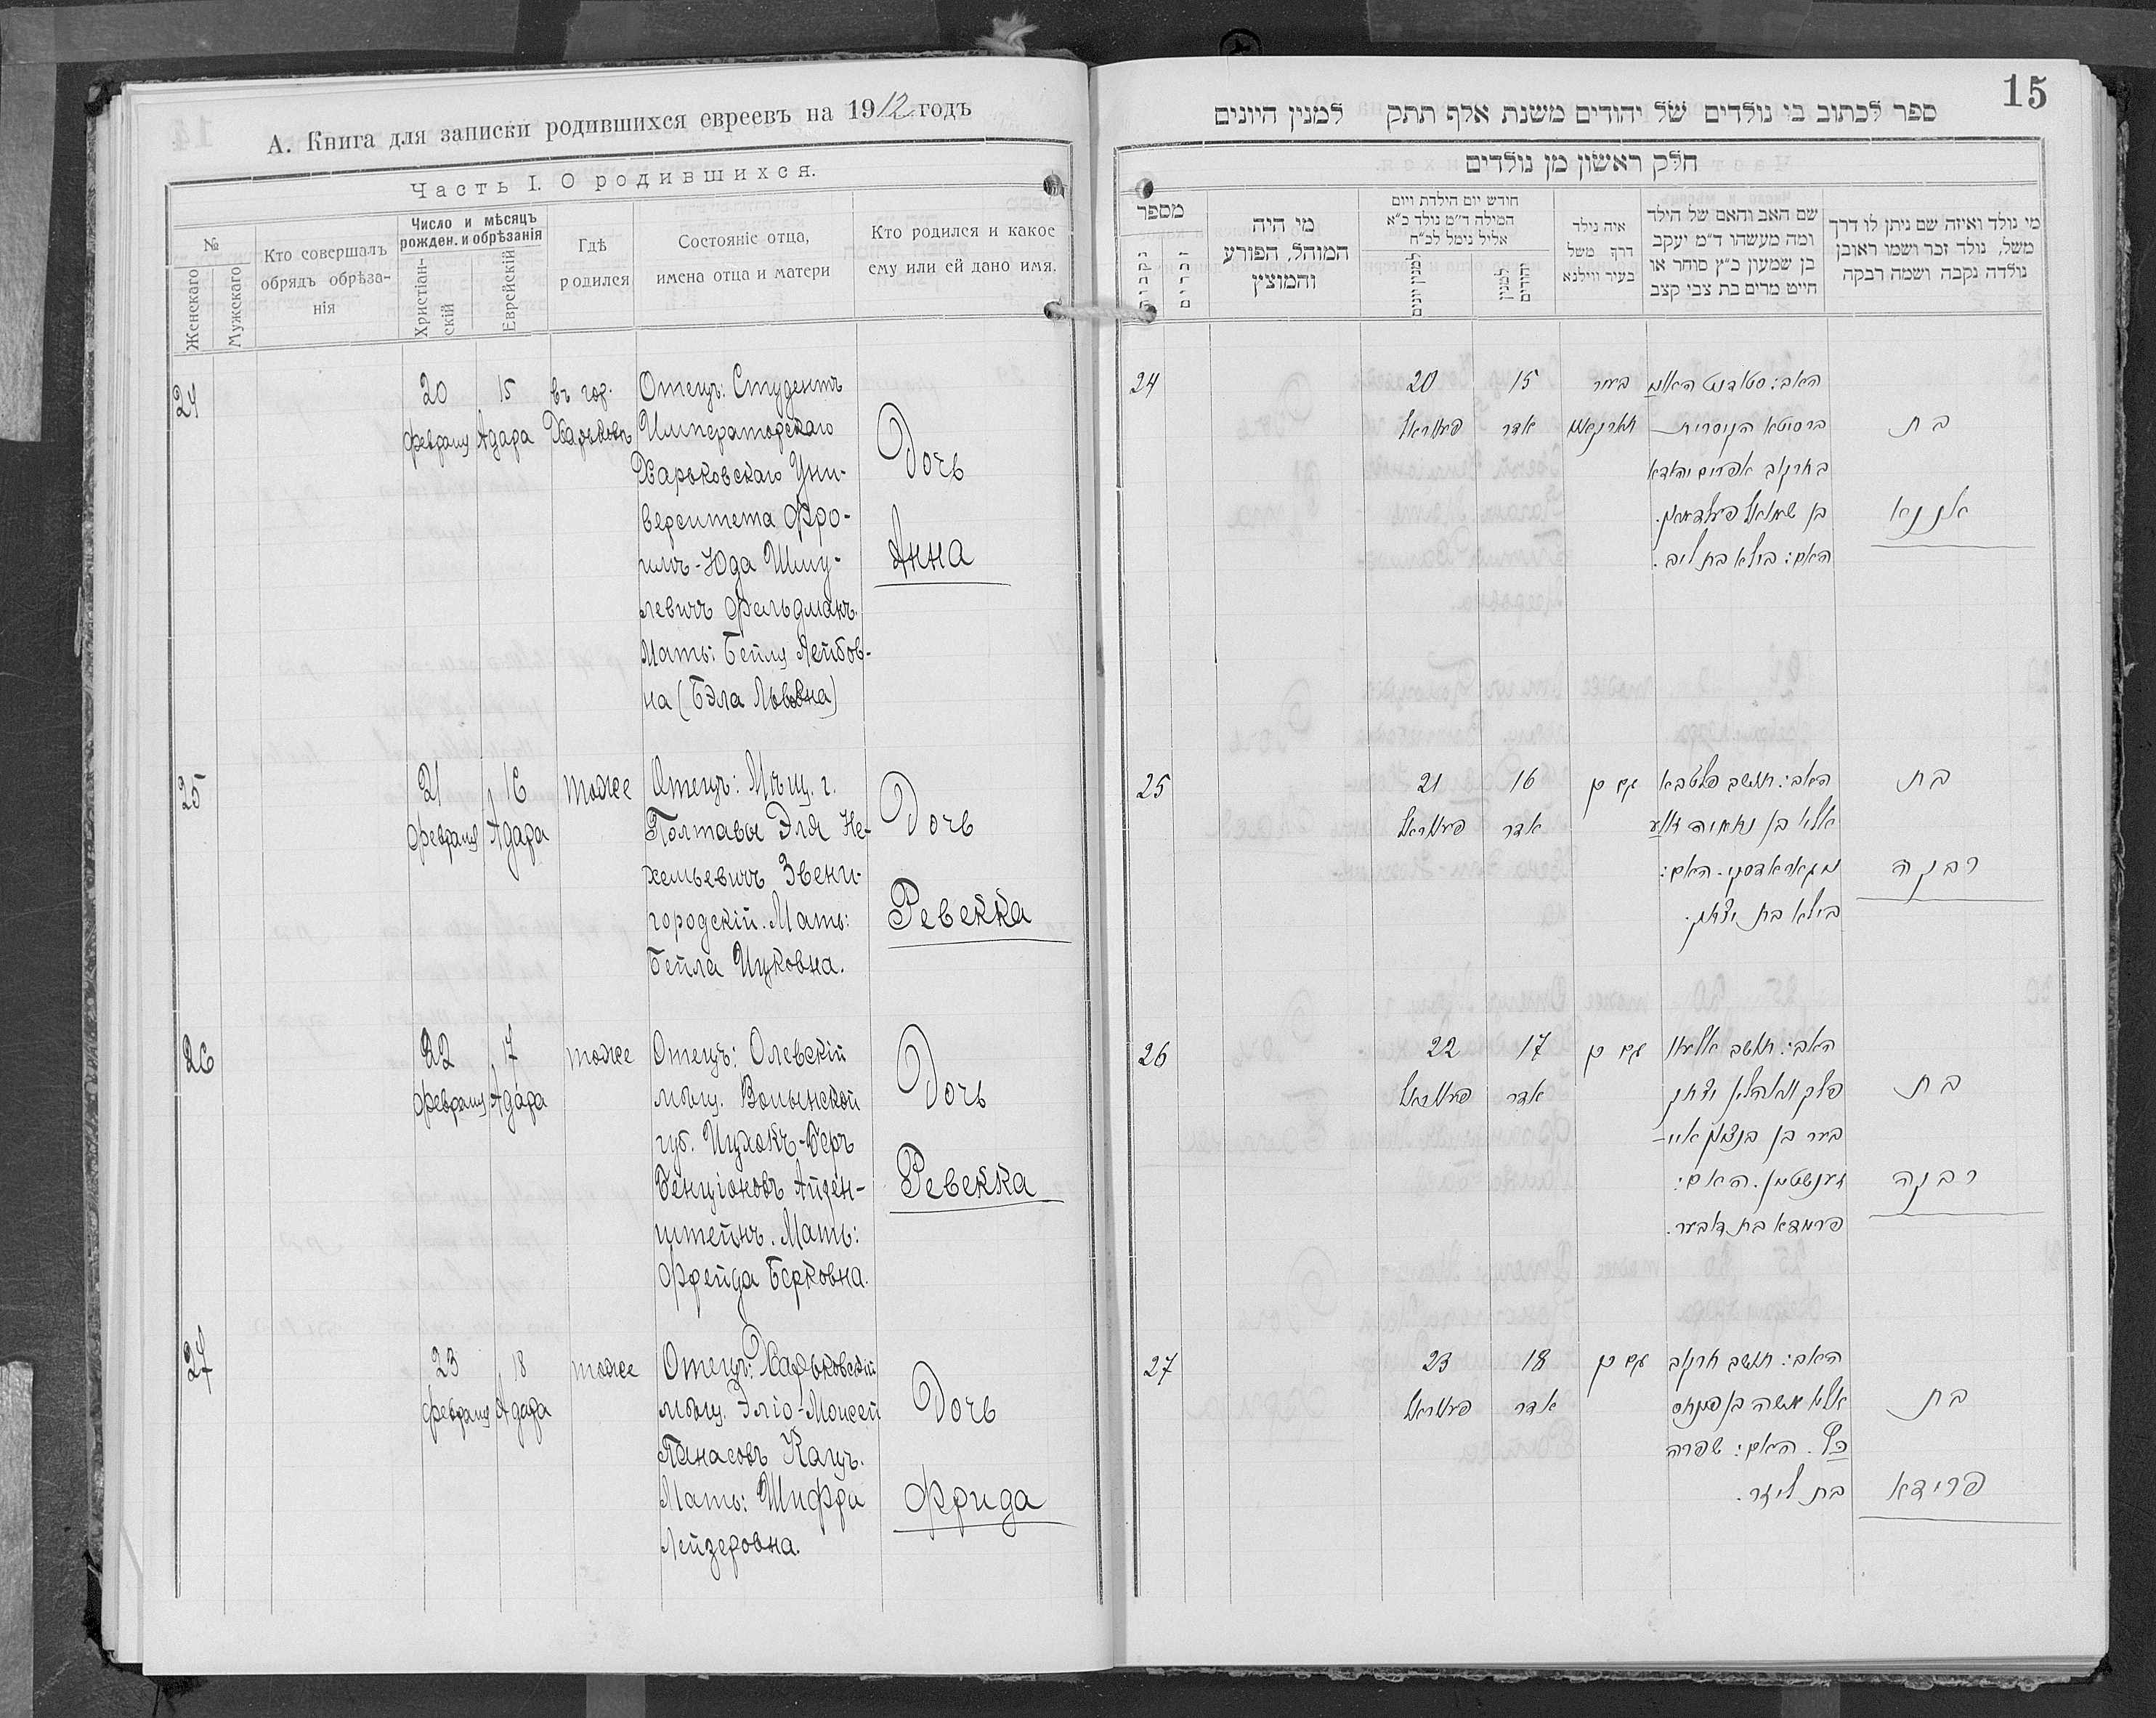 А. Книга для записки родившихся евреевъ на 1912 годъ
Часть I. О родившихся.
№
Женскаго
Мужскаго
Кто совершалъ
обрядъ обрѣза-
нія
Число и мѣсяцъ
рожден. и обрѣзанія
Христіан-
скій
Еврейскій
Гдѣ
родился
Состояніе отца,
имена отца и матери
Кто родился и какое
ему или ей дано имя.
24
20
февраля
15
Адара
въ гор.
Харьковѣ
Отецъ: Студентъ
Императорскаго
Харьковскаго Уни-
верситета Фро-
имъ-Юда Шму-
левичъ Фельдманъ.
Мать: Бейля Лейбов-
на (Бэла Львовна)
Дочь
Анна
25
21
февраля
16
Адара
тоже
Отецъ: Мѣщ. г.
Полтавы Эля Не-
хемьевичъ Звени-
городскій. Мать:
Бейла Ицковна.
Дочь
Ревекка
26
22
февраля
17
Адара
тоже
Отецъ: Олевскій
мѣщ. Волынской
губ. Ицхокъ-Беръ
Бенціоновъ Айзен-
штейнъ. Мать:
Фрейда Берковна.
Дочь
Ревекка
27
23
февраля
18
Адара
тоже
Отецъ: Харьковскій
мѣщ. Эліо-Моисей
Кацъ.
Мать: Шифра
Лейзеровна.
Дочь
Фрида
15
ספר לכתוב בו נולדים של יהודים משנת אלף תתק למנין היונים
חלק ראשון מן נולדים
מספר
נקבות
זכרים
מי היה
המוהל, הפורע
והמוצץ
חודש יום הילדת ויום
המילה ד״מ נולד כ״א
אליל נימל לכ״ח
למנין יונים
למנין
יהודים
איה נולד
דרך משל
בעיר ווילנא
שם האב והאם של הילד
ומה מעשהו ד״מ יעקב
בן שמעון כ״ץ סוחר או
חייט מרים בת צבי קצב
מי נולד ואיזה שם ניתן לו דרך
משל, נולד זכר ושמו ראובן
נולדה נקבה ושמה רבקה
24
20
15
אדר
בעיר
האב: סטודנט
בן שמואל פעלדמאן.
האם: בילא בת ליב.
בת
אננא
25
21
16
אדר
האב: תושב פלטבא
אליא בן נחמיה
האם:
בילא בת יצחק.
בת
רבקה
26
22
17
אדר
האב: תושב
יצחק
בער בן בנציון אייי-
זענשטיין. האם:
פרידא בת דובער.
בת
רבקה
27
23
18
אדר
האב: תושב חרקוב
אליא משה בן פנחס
כץ. האם: שפרה
בת ליזר.
בת
פרידא